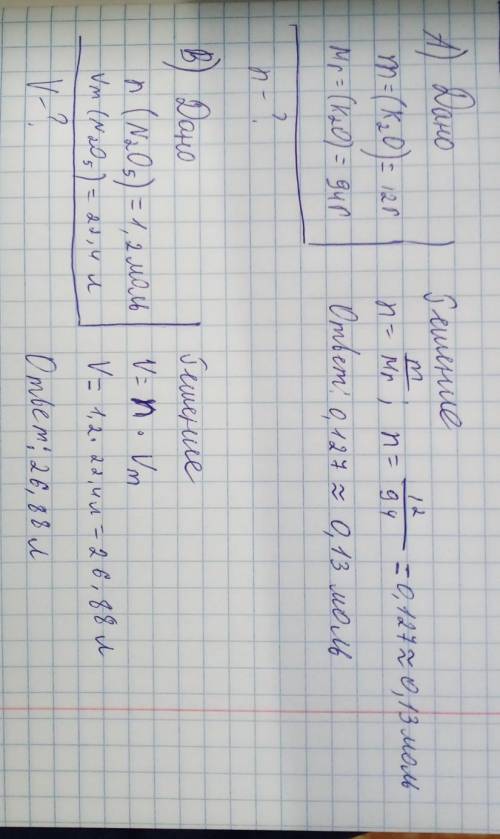 А) Дано
m = (K₂O) = 12г
Mr = (K₂O) = 94г
n - ?
Решение
n = m/Mr ; n = 12/94 = 0,127 ≈ 0,13 моль
Ответ: 0,127 ≈ 0,13 моль
В) Дано
n (N₂O₅) = 1,2 моль
Vm (N₂O₅) = 22,4 л
V - ?
Решение
V = n · Vm
V = 1,2 · 22,4л = 26,88 л
Ответ: 26,88 л